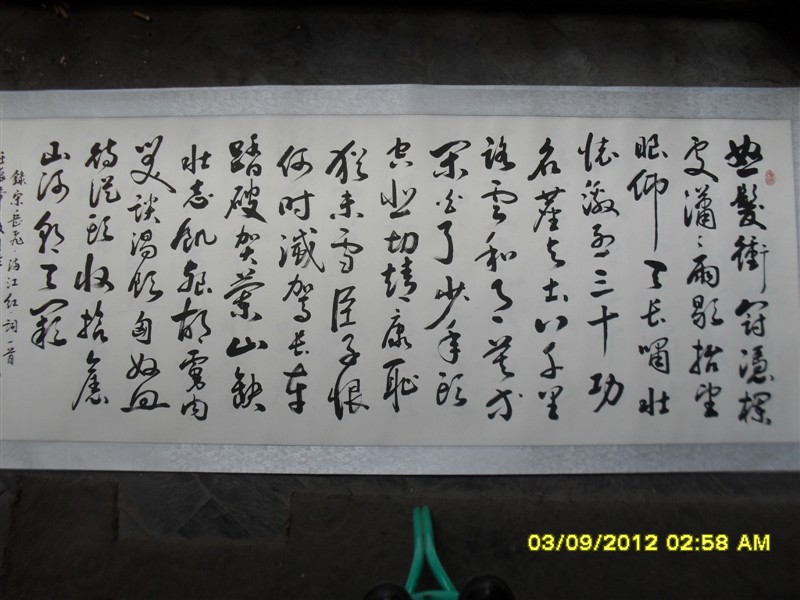 怒髮衝冠憑欄
處瀟瀟雨歇抬望
眼仰天長嘯壯
懷激烈三十功
名塵與土八千里
路雲和月莫等
閑白了少年頭
空悲切靖康恥
猶未雪臣子恨
何時滅駕長車
踏破賀蘭山缺
壯志飢餐胡虜肉
笑談渴飲匈奴血
待從頭收拾舊
山河朝天闕
錄宋岳飛滿江红詞一首
03/09/2012 02:58 AM